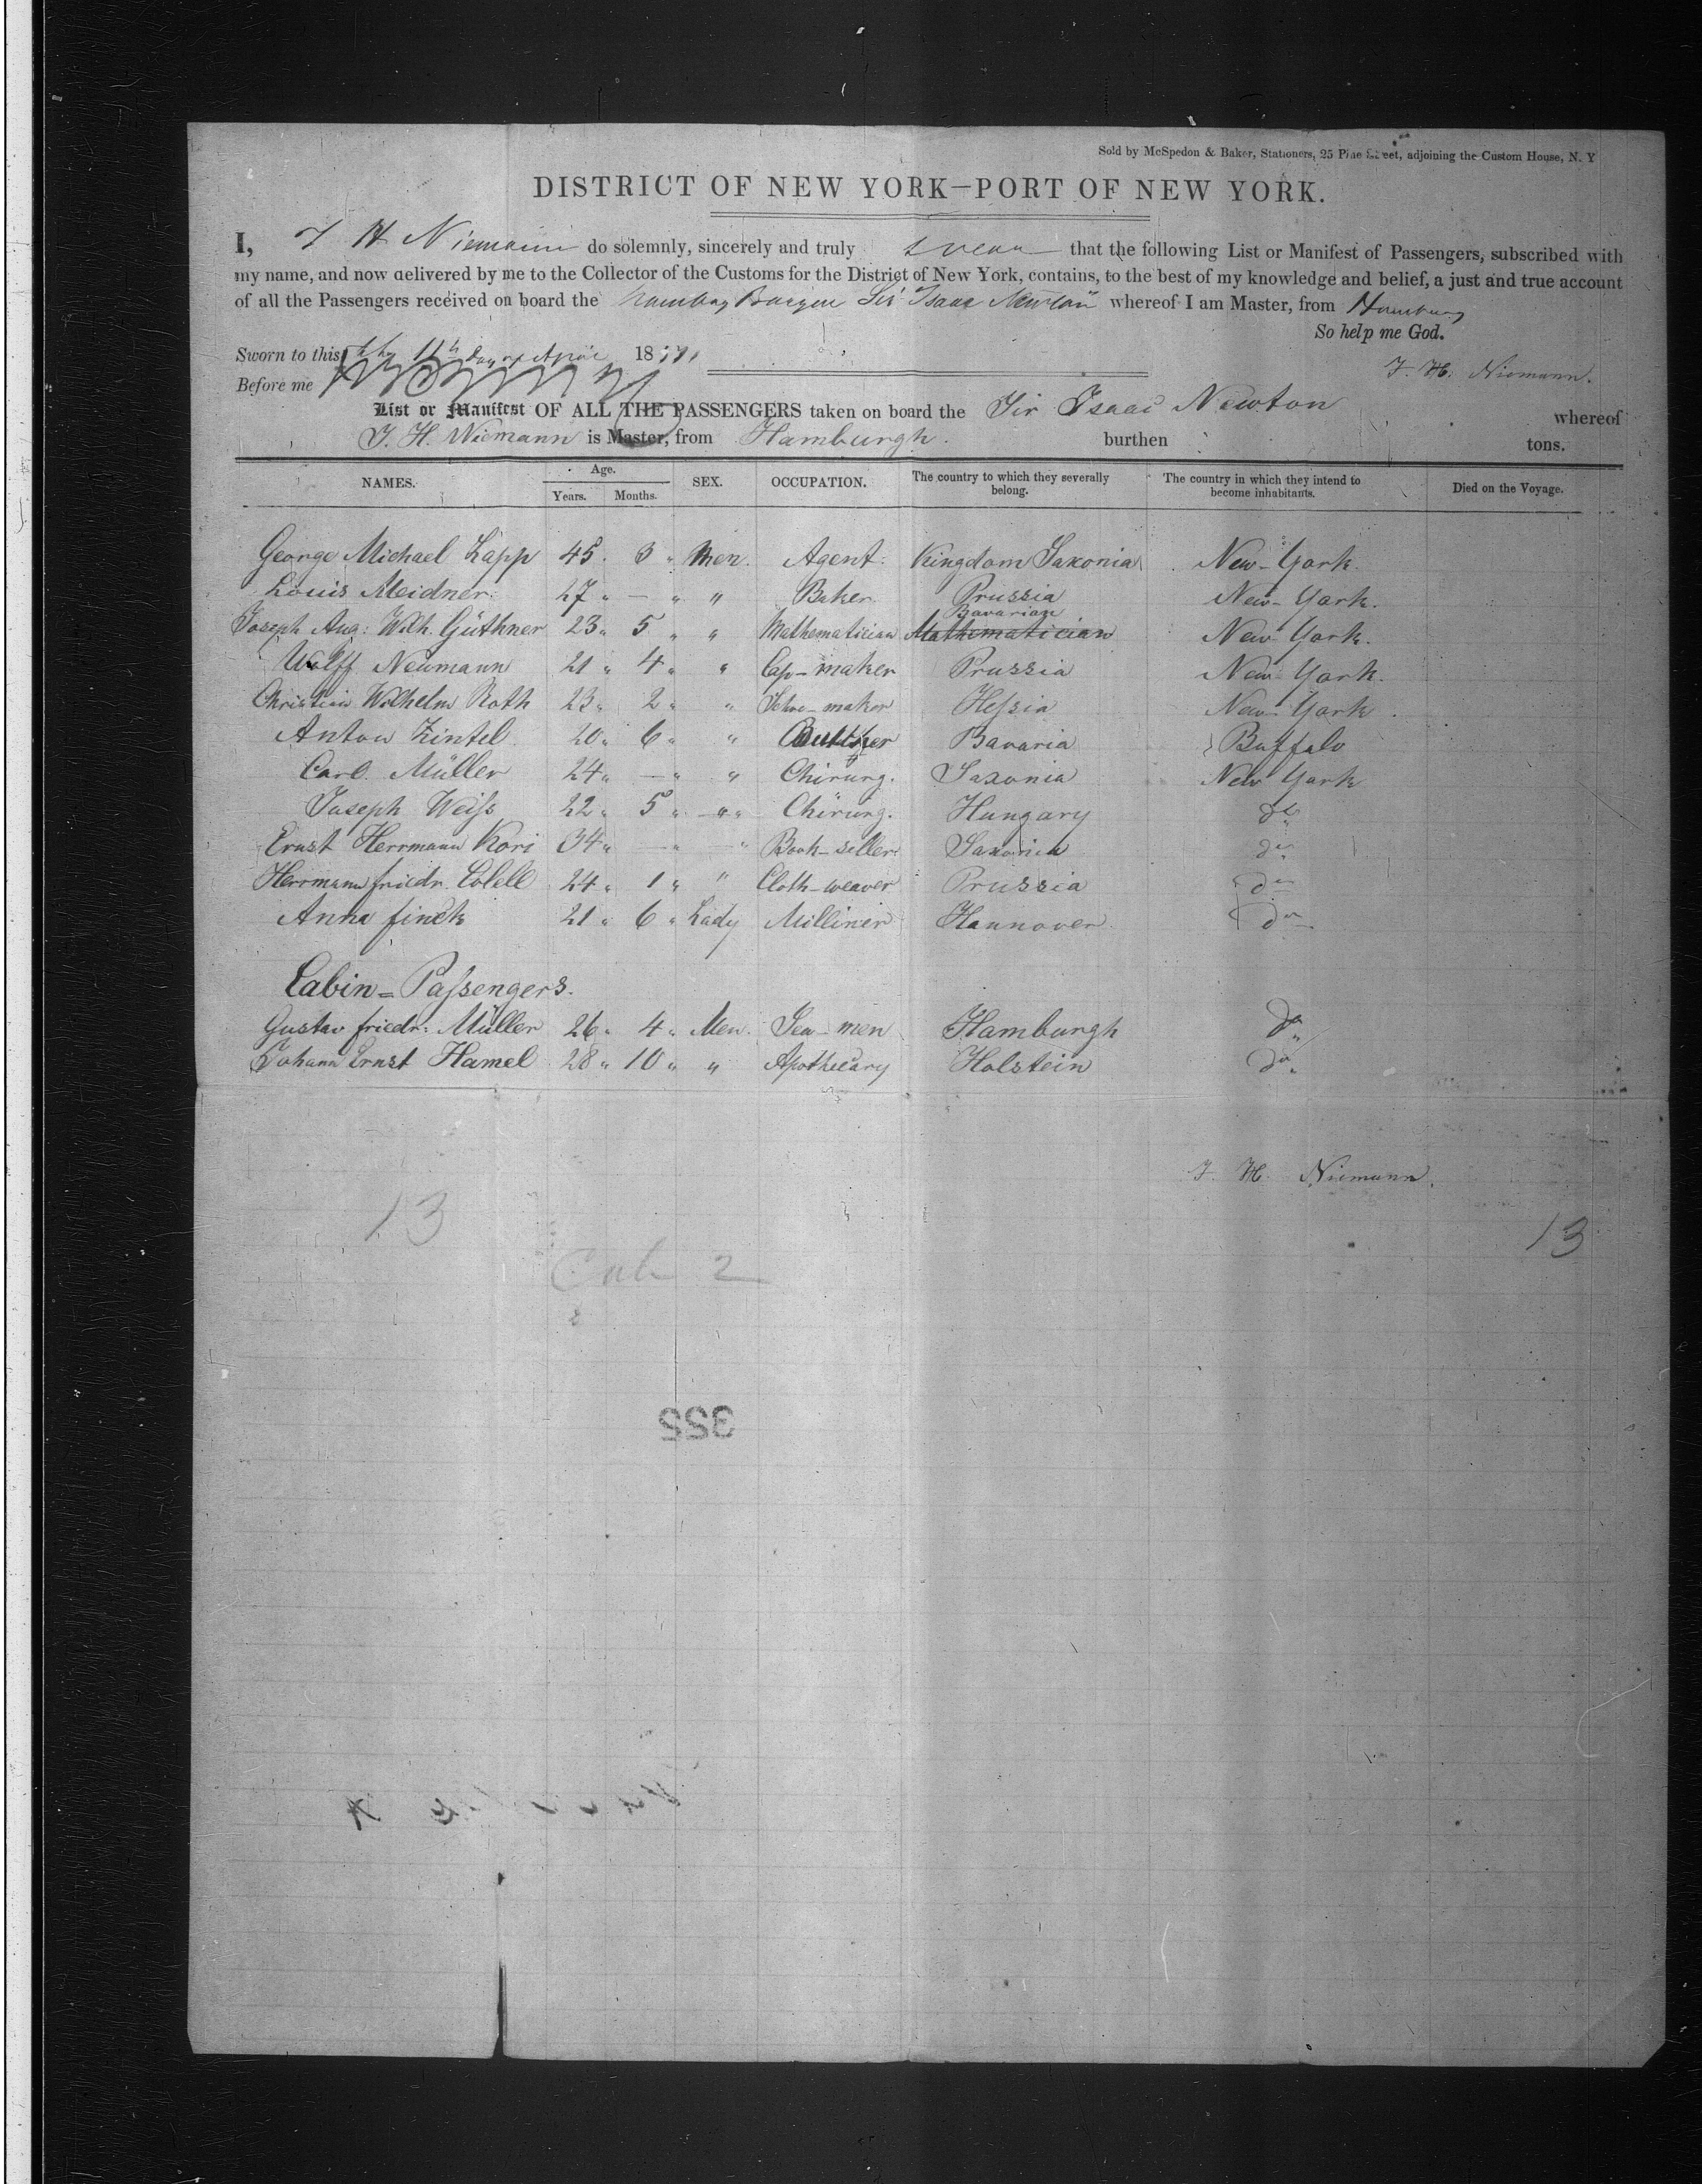 Sold by McSpedon & Baker, Stationers, 25 Pine Street, adjoining the Custom House, N. Y
DISTRICT OF NEW YORK—PORT OF NEW YORK.
I, J H Niemann do solemnly, sincerely and truly swear that the following List or Manifest of Passengers, subscribed with
my name, and now delivered by me to the Collector of the Customs for the District of New York, contains, to the best of my knowledge and belief, a just and true account
of all the Passengers received on board the Hamburg Barque Sir Isaac Newton whereof I am Master, from Hamburg
So help me God.
Sworn to this 11th day of April 18
J. H. Niemann.
Before me
List or Manifest OF ALL THE PASSENGERS taken on board the Sir Isaac Newton whereof
J. H. Niemann is Master, from Hamburgh. burthen tons.
NAMES. Age. Years. Months. SEX. OCCUPATION. The country to which they severally belong. The country in which they intend to become inhabitants. Died on the Voyage.
George Michael Lapp 45. 3 " Men. Agent. Kingdom Saxonia New-York.
Louis Meidner. 27 " — " " Baker. Prussia New-York.
Joseph Aug: Wilh. Güthner 23 " 5 " " Mathematician Mathematician Bavarian New York.
Wolff Neumann 21 " 4 " " Cap-maker Prussia New-York.
Christian Wilhelm Roth 23 " 2 " " Schoe-maker Heſsia New-York.
Anton Zintel 20 " 6 " " Bavaria Buffalo
Carl Müller 24 " — " " Chirurg. Saxonia New York
Joseph Weiſs 22 " 5 " " Chirurg. Hungary do
Ernst Herrmann Kori 34 " — " " Book-seller. Saxonia do
Herrmann friedr. Colell 24 " 1 " " Cloth-weaver Prussia do
Anna finck 21 " 6 " Lady Milliner Hannover. do
Cabin=Paſsengers.
Gustav friedr: Müller 26 " 4 " Men. Sea-men Hamburgh do
Johann Ernst Hamel 28 " 10 " " Apothecary Holstein do
J. H. Niemann.
13
13
Cab 2
355